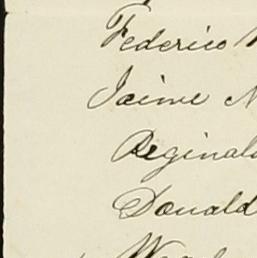 Federico
Jaime N
Reginal
Donald